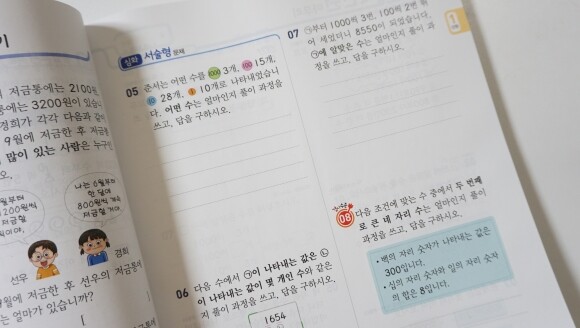 기
저금통에는 2100원
통에는 3200원이 있습니
경희가 각각 다음과 같이
9월에 저금한 후 저금
많이 있는 사람은 누구
나는 6월부터
한 달에
800원씩 계속
저금할 거야.
1200원씩
선우
경희
9월에 저금한 후 선우의 저금통에
는 얼마가 있습니까?
심화 서술형 문제
05 준서는 어떤 수를 1000 3개, 100 15개,
10 28개, 1 10개로 나타내었습니
다. 어떤 수는 얼마인지 풀이 과정을
쓰고, 답을 구하시오.
06 다음 수에서 ㉠이 나타내는 값은 ㉡
이 나타내는 값이 몇 개인 수와 같은
과정을 쓰고, 답을 구하시오.
1654
07 ㉠부터 1000씩 3번, 100씩 2번 뛰
어 세었더니 8550이 되었습니다.
㉠에 알맞은 수는 얼마인지 풀이 과
정을 쓰고, 답을 구하시오.
1
08 다음 조건에 맞는 수 중에서 두 번째
로 큰 네 자리 수는 얼마인지 풀이
과정을 쓰고, 답을 구하시오.
• 백의 자리 숫자가 나타내는 값은
300입니다.
• 십의 자리 숫자와 일의 자리 숫자
의 합은 8입니다.